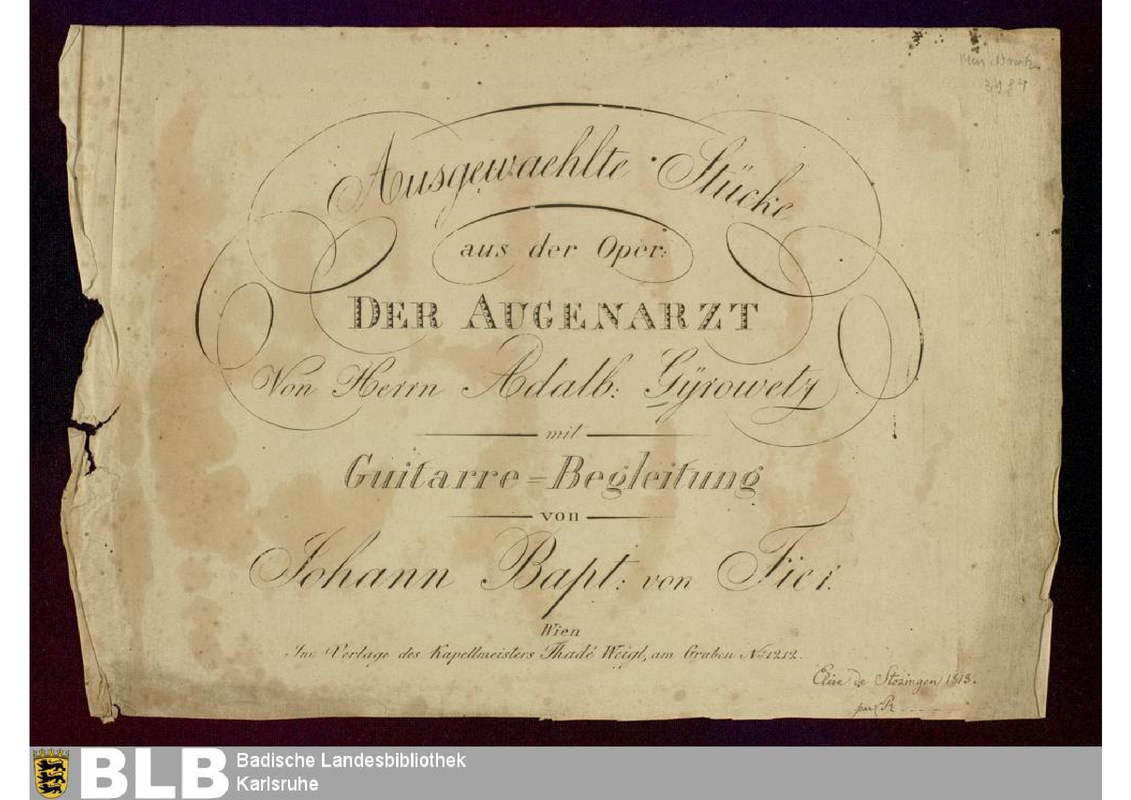 Mus. Druck
Ausgewaehlte Stücke
aus der Oper:
DER AUGENARZT
Von Herrn Adalb: Gÿrowetz
mit
Guitarre=Begleitung
von
Johann Bapt: von Fier.
Wien
Im Verlage des Kapellmeisters Thadé Weigl, am Graben No. 1212.
Elise de Stozingen 1813.
par
BLB Badische Landesbibliothek
Karlsruhe